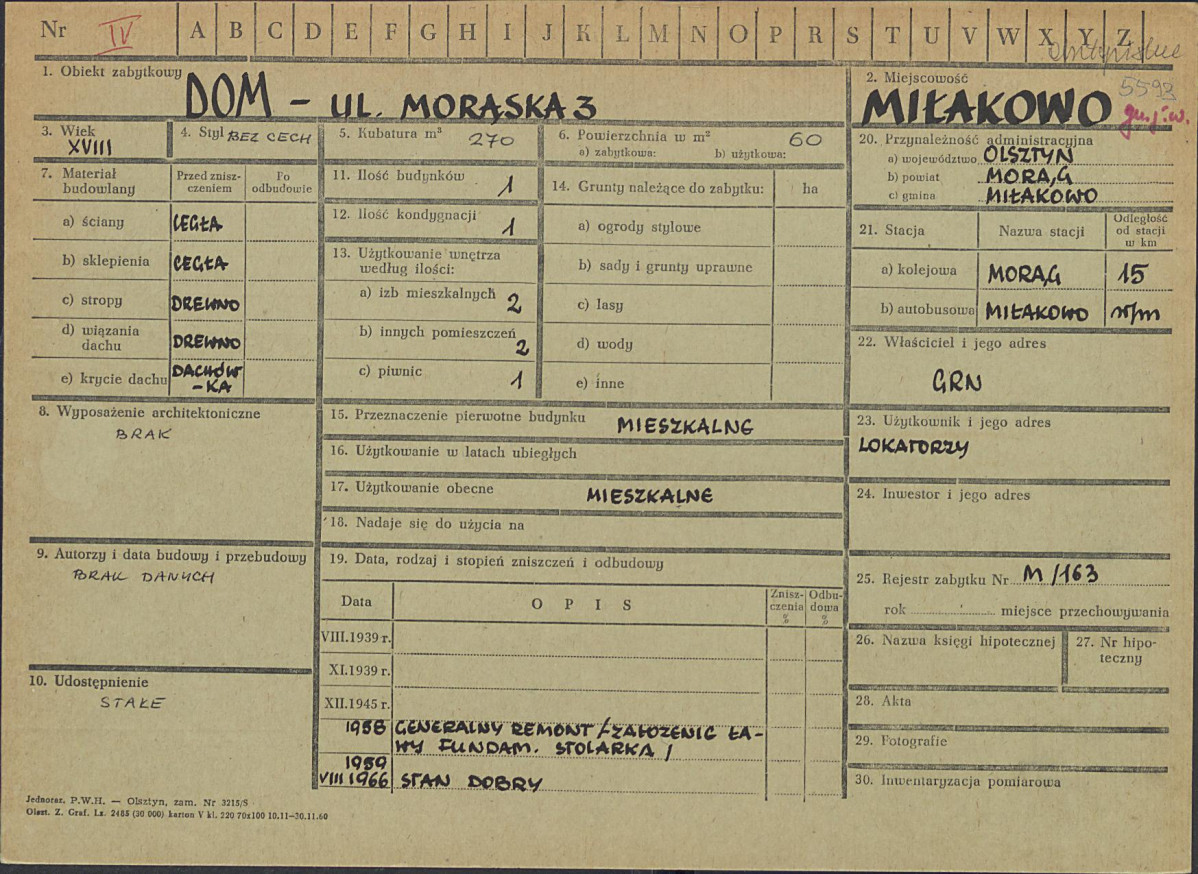 Nr IV A B C D E F G H I J K L M N O P R S T U V W X Y Z
5593
1. Obiekt zabytkowy
DOM - UL. MORĄSKA 3
2. Miejscowość
MIŁAKOWO
3. Wiek
XVIII
4. Styl BEZ CECH
5. Kubatura m³
270
6. Powierzchnia w m²
60
a) zabytkowa: b) użytkowa:
7. Materiał budowlany
Przed znisz-
czeniem
Po
odbudowie
a) ściany CEGŁA
b) sklepienia CEGŁA
c) stropy DREWNO
d) wiązania
dachu DREWNO
e) krycie dachu DACHÓW
-KA
11. Ilość budynków
1
12. Ilość kondygnacji
1
13. Użytkowanie wnętrza
według ilości:
a) izb mieszkalnych 2
b) innych pomieszczeń
2
c) piwnic 1
14. Grunty należące do zabytku: ha
a) ogrody stylowe
b) sady i grunty uprawne
c) lasy
d) wody
e) inne
20. Przynależność administracyjna
a) województwo OLSZTYN
b) powiat MORĄG
c) gmina MIŁAKOWO
21. Stacja Nazwa stacji
Odległość
od stacji
w km
a) kolejowa MORĄG 15
b) autobusowa MIŁAKOWO w/m
22. Właściciel i jego adres
GRN
8. Wyposażenie architektoniczne
BRAK
15. Przeznaczenie pierwotne budynku MIESZKALNE
16. Użytkowanie w latach ubiegłych
17. Użytkowanie obecne MIESZKALNE
18. Nadaje się do użycia na
23. Użytkownik i jego adres
LOKATORZY
24. Inwestor i jego adres
9. Autorzy i data budowy i przebudowy
BRAK DANYCH
19. Data, rodzaj i stopień zniszczeń i odbudowy
Data OPIS
Znisz-
czenia
%
Odbu-
dowa
%
VIII.1939 r.
XI.1939 r.
XII.1945 r.
1958 GENERALNY REMONT /-ZAŁOŻENIE ŁA-
WY FUNDAM. STOLARKA /
1959
VIII 1966 STAN DOBRY
25. Rejestr zabytku Nr M/163
rok miejsce przechowywania
26. Nazwa księgi hipotecznej
27. Nr hipo-
teczny
10. Udostępnienie
STAŁE
28. Akta
29. Fotografie
30. Inwentaryzacja pomiarowa
Jednoraz. P.W.H. — Olsztyn, zam. Nr 3215/S
Olszt. Z. Graf. Lz. 2485 (30 000) karton V kl. 220 70x100 10.11—30.11.60